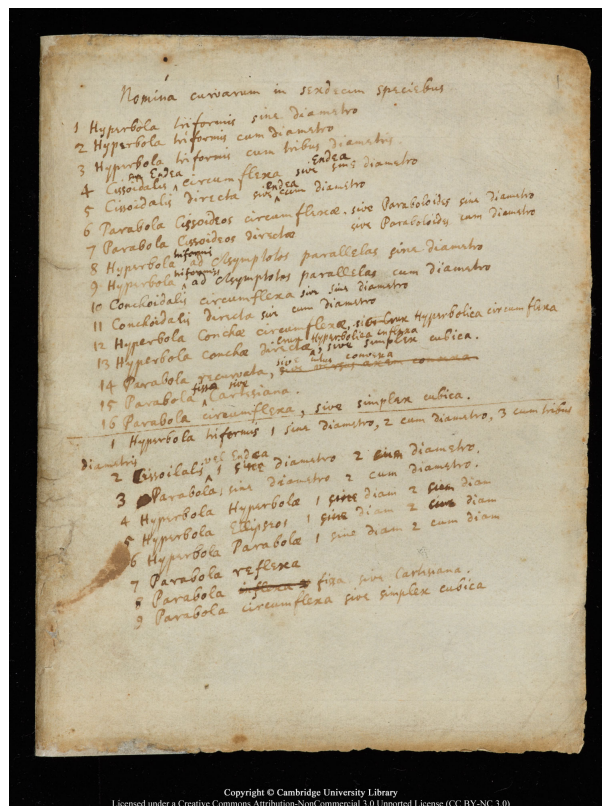 Nomina curvarum in sexdecim speciebus
1 Hyperbola triformis sine diametro
2 Hyperbola triformis cum diametro
3 Hyperbola triformis cum tribus diametris
4 Cissoidalis Endea circumflexa sive Endea sine diametro
5 Cissoidalis directa sive Endea cum diametro
6 Parabola Cissoideos circumflexæ. sive Paraboloides sine diametro
7 Parabola Cissoideos directæ sive Paraboloides cum diametro
8 Hyperbola triformis ad Asymptotos parallelas sine diametro
9 Hyperbola triformis ad Asymptotos parallelas cum diametro
10 Conchoidalis circumflexa sive sine diametro
11 Conchoidalis directa sive cum diametro
12 Hyperbola Conchæ circumflexæ, sive Crux Hyperbolica circumflexa
13 Hyperbola Conchæ directæ, Crux Hyperbolica
14 Parabola recurvata, sive convexa
15 Parabola fissa sive Cartesiana.
16 Parabola circumflexa, sive simplex cubica.
1 Hyperbola triformis 1 sine diametro, 2 cum diametro, 3 cum tribus
diametris
2 Cissoidalis vel Endea 1 sine diametro 2 cum diametro.
3 Parabola, sine diametro 2 cum diametro.
4 Hyperbola Hyperbolæ 1 sine diam 2 cum diam
5 Hyperbola Ellipseos 1 sine diam 2 cum diam
6 Hyperbola Parabolæ 1 sine diam 2 cum diam
7 Parabola reflexa
8 Parabola fissa sive Cartesiana.
9 Parabola circumflexa sive simplex cubica
Copyright © Cambridge University Library
Licensed under a Creative Commons Attribution-NonCommercial 3.0 Unported License (CC BY-NC 3.0)